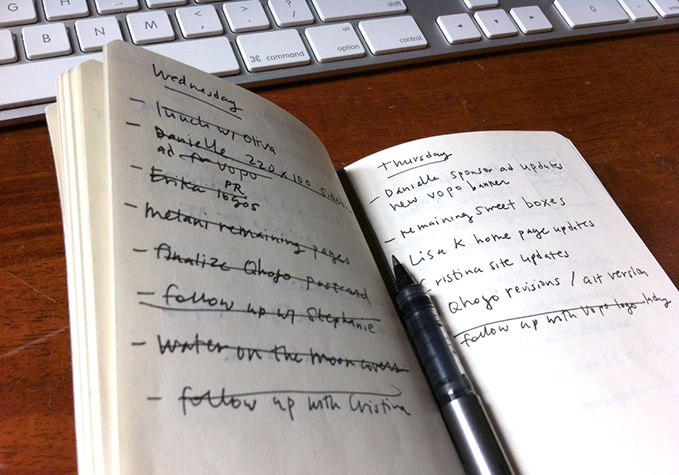 G
B
N
M
<
,
>
.
?
/
shift
⌘
command
alt
option
control
0
Wednesday
- lunch w/ Oliva
- Danielle 220 x 100
ad for Vopo
PR
- Erika logos
- melani remaining pages
- finalize Qhogo postcard
- follow up w/ Stephanie
- water on the moon covers
- follow up with Cristina
Thursday
- Danielle sponsor ad updates
new vopo banner
- remaining sweet boxes
Lisa K home page updates
Cristina site updates
Qhogo revisions / alt version
follow up with vopo logo